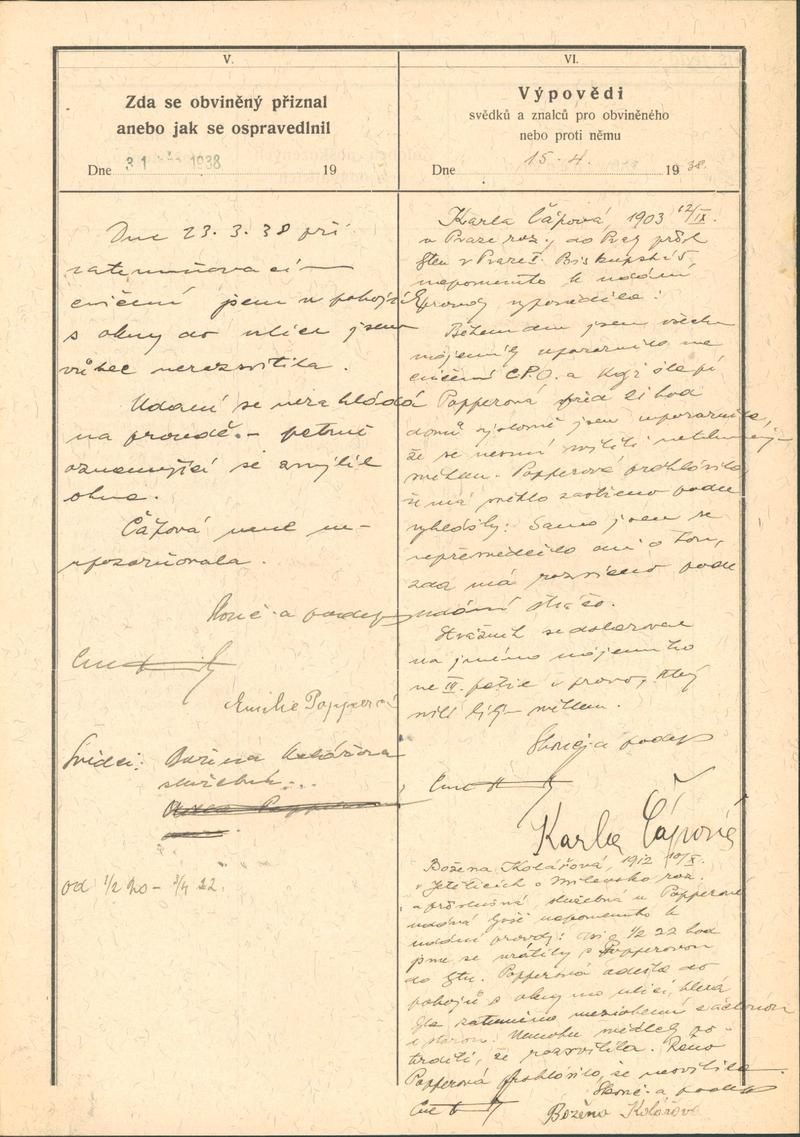 V.
Zda se obviněný přiznal
anebo jak se ospravedlnil
Dne 31 1938 19
Dne 23. 3. 38 při
zatemňovacím
cvičení jsem v pokoji
s okny do ulice jsem
vůbec nerozsvítila.
Udání se nezakládá
na pravdě. – patrně
oznamující se zmýlil
okna.
Čápová mne ne-
upozorňovala.
Skonč. a podep
Emilie Popperová
Svědci: Božena Kolářová
služebná
od 1/2 20 – 3/4 22.
VI.
Výpovědi
svědků a znalců pro obviněného
nebo proti němu
Dne 15. 4. 1938.
Karla Čápová 1903 12/IX.
v Praze roz., do Prahy přísl.
bytem v Praze I. Biskupská 5
napomenuta k udání
pravdy vypověděla:
Během dne jsem všechny
nájemníky upozornila na
cvičení C.P.O. a když šla pí
Popperová před 21 hod
domů výslovně jsem upozornila,
že se nesmí svítiti
světlem. Popperová prohlásila,
že má světlo zastřeno podle
vyhlášky. Sama jsem se
nepřesvědčila ani o tom,
zda má rozsvíceno podle
udání stráže.
Strážník se dotazoval
na jméno nájemníka
ve III. patře v pravo, který
svítí světlem.
Skonč. a podep
Karla Čápová
Božena Kolářová, 1912 10/X.
v Jetěticích o Milevsko roz.
a příslušná, služebná u Popperové
napomenuta k
udání pravdy: As o 1/2 22 hod
jsme se vrátily s Popperovou
do bytu. Popperová odešla do
pokojů s okny na ulici, která
byla zatemněna
a storou. Nemohu
tvrditi, že rozsvítila. Ráno
Popperová prohlásila, že nesvítila.
Skonč. a podep
Božena Kolářová